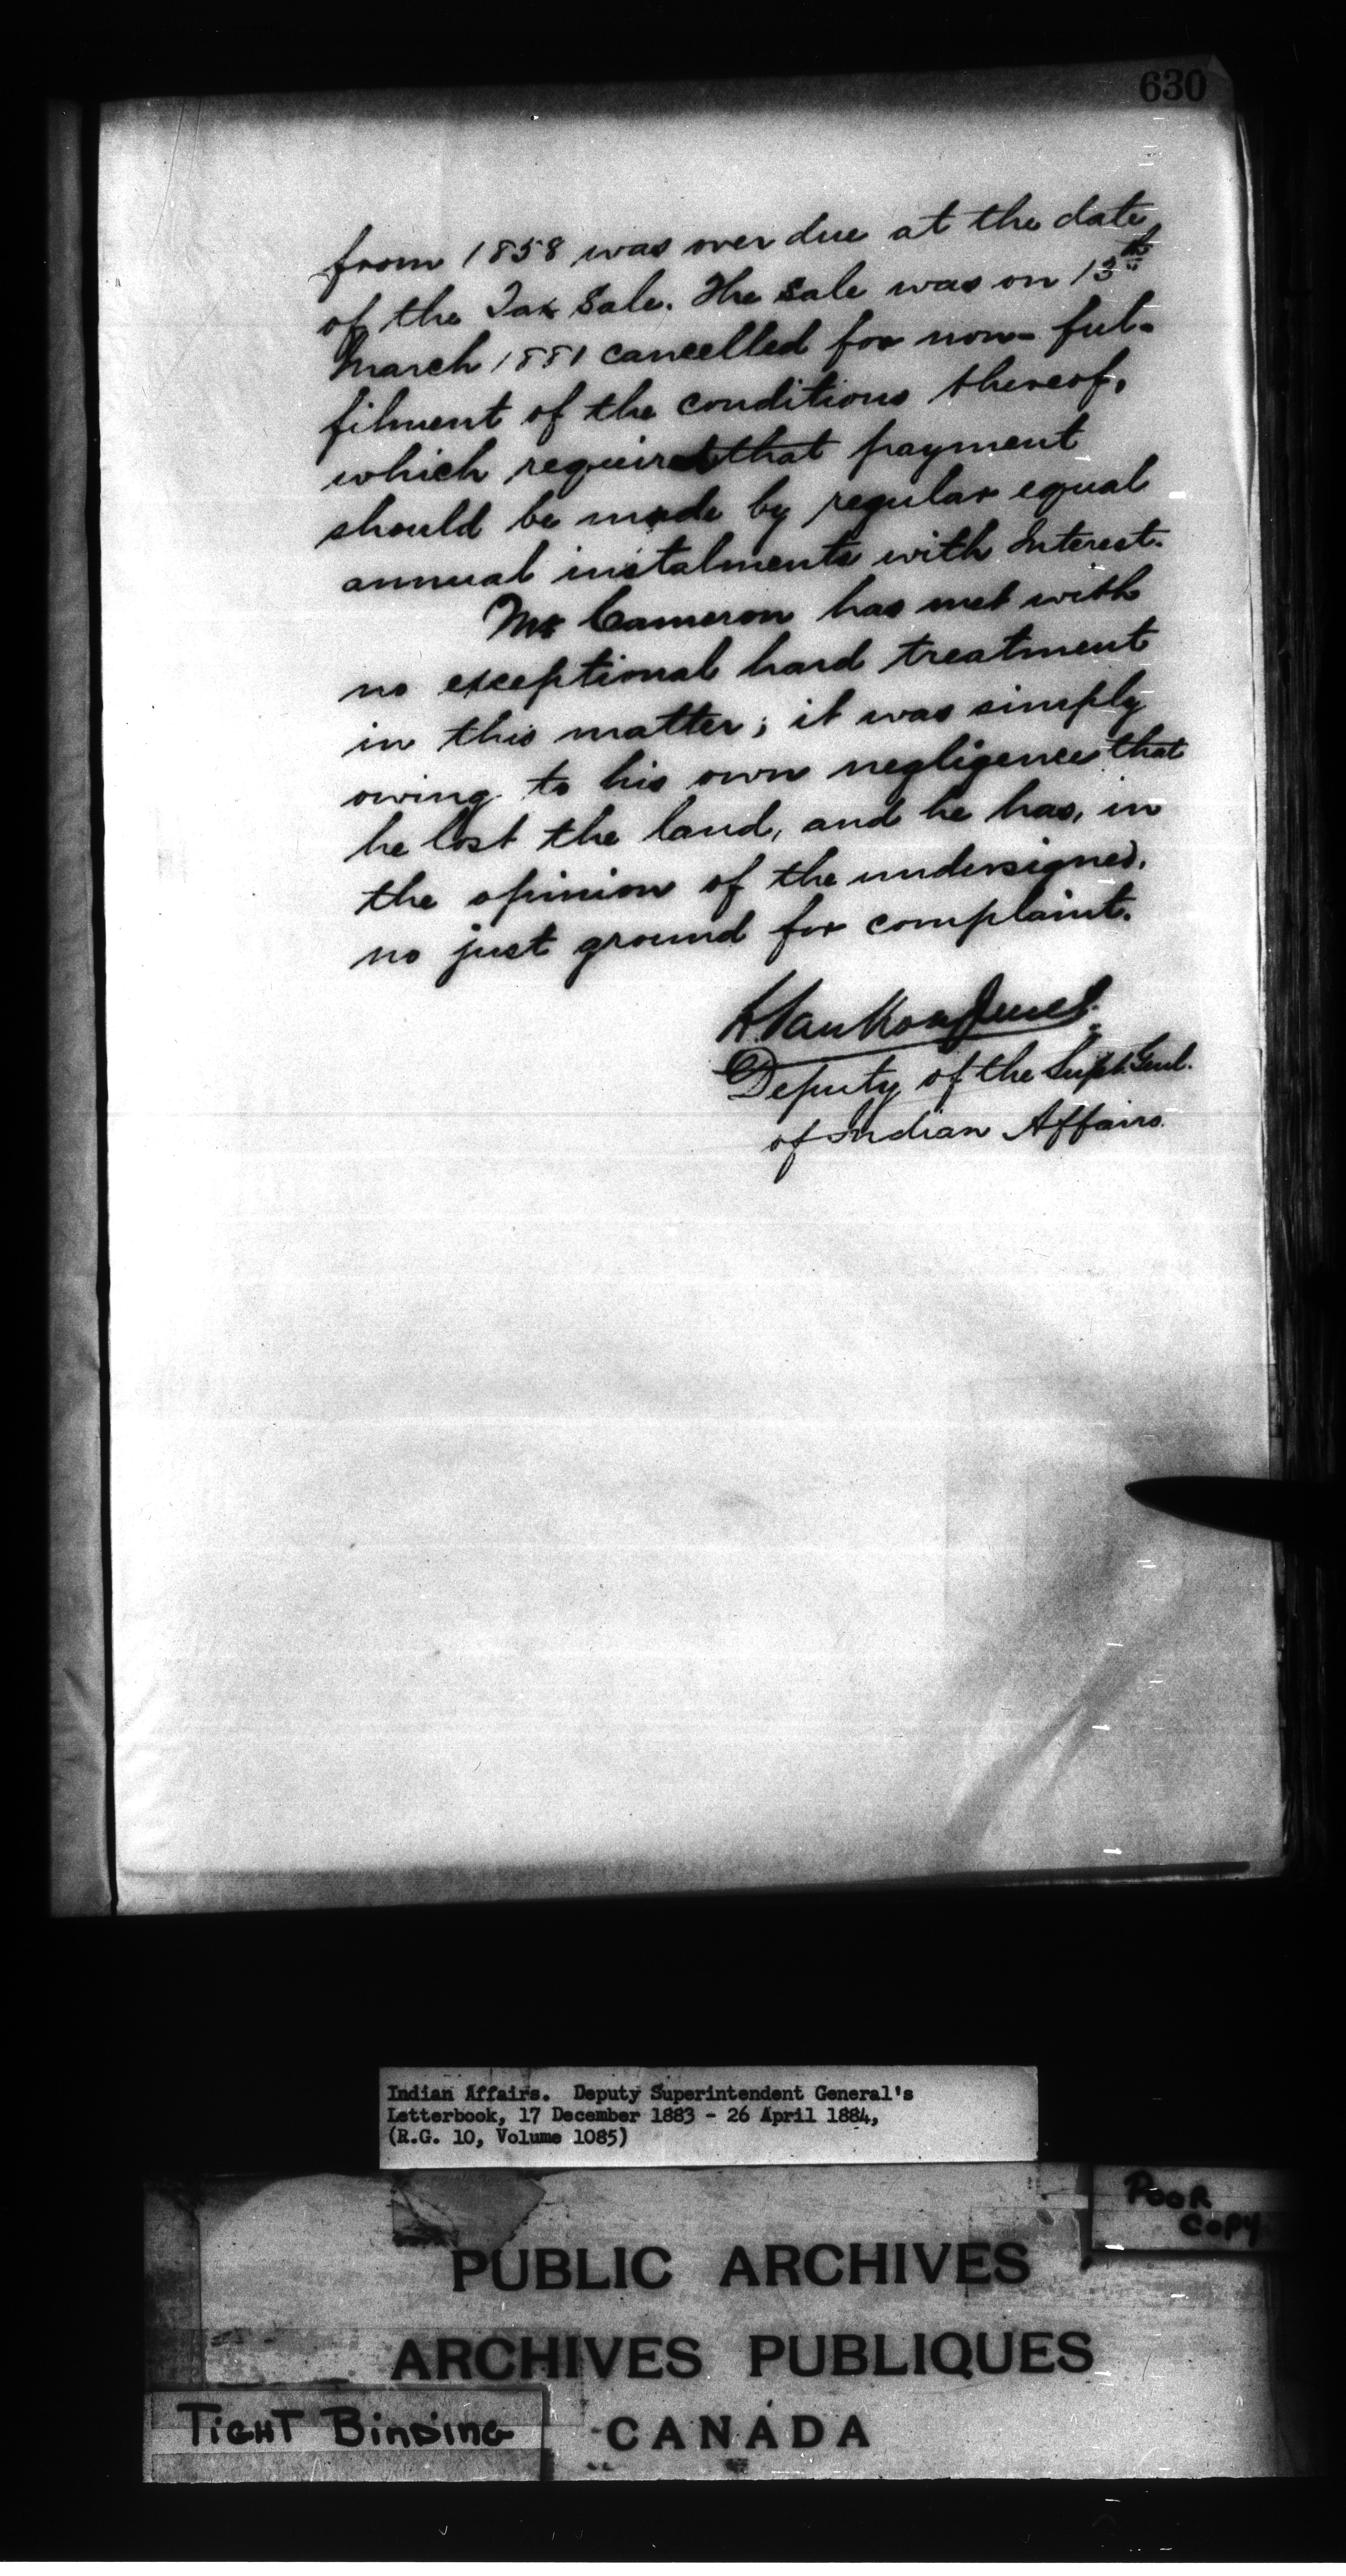 630
from 1858 was over due at the date
of the Tax Sale. The Sale was on 13th
March 1881 cancelled for non-ful-
filment of the conditions thereof,
which required that payment
should be made by regular equal
annual instalments with Interest.
Mr Cameron has met with
no exceptional hard treatment
in this matter; it was simply
owing to his own negligence that
he lost the land, and he has, in
the opinion of the undersigned,
no just ground for complaint.
L. VanKoughnet
Deputy of the Supt. Genl.
of Indian Affairs.
Indian Affairs. Deputy Superintendent General's
Letterbook, 17 December 1883 - 26 April 1884,
(R.G. 10, Volume 1085)
POOR
COPY
PUBLIC ARCHIVES
ARCHIVES PUBLIQUES
CANADA
TIGHT BINDING